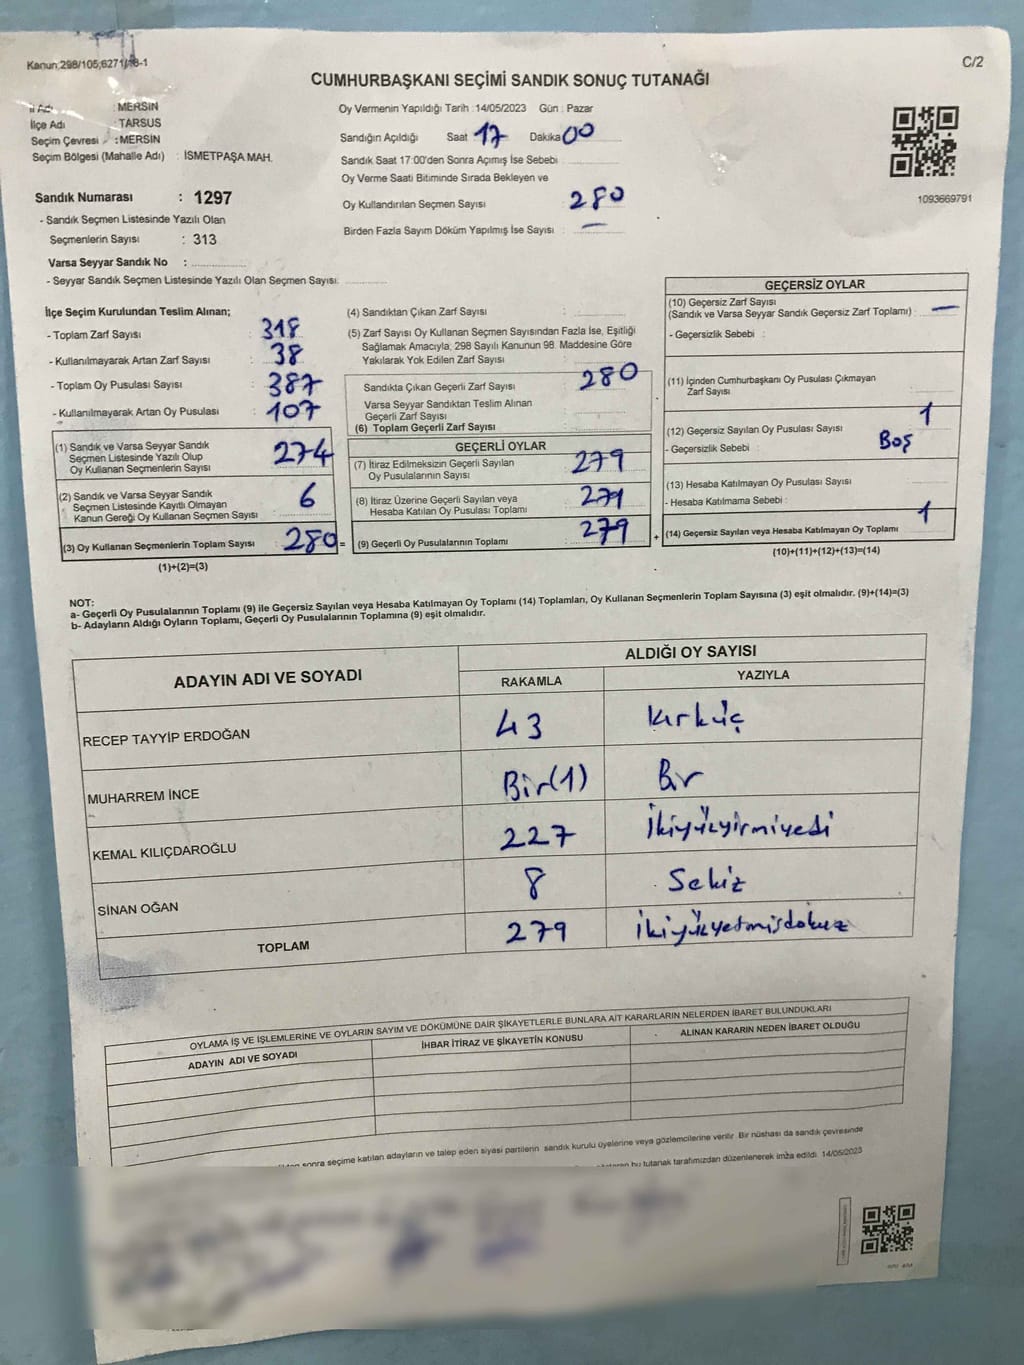 Kanun:298/105;6271/18-1
C/2
CUMHURBAŞKANI SEÇİMİ SANDIK SONUÇ TUTANAĞI
İl Adı : MERSİN
İlçe Adı : TARSUS
Seçim Çevresi : MERSİN
Seçim Bölgesi (Mahalle Adı) : İSMETPAŞA MAH.
Oy Vermenin Yapıldığı Tarih : 14/05/2023 Gün : Pazar
Sandığın Açıldığı Saat 17 Dakika 00
Sandık Saat 17:00'den Sonra Açımış İse Sebebi
Oy Verme Saati Bitiminde Sırada Bekleyen ve
Oy Kullandırılan Seçmen Sayısı : 280
Birden Fazla Sayım Döküm Yapılmış İse Sayısı : —
1093669791
Sandık Numarası : 1297
- Sandık Seçmen Listesinde Yazılı Olan
Seçmenlerin Sayısı : 313
Varsa Seyyar Sandık No :
- Seyyar Sandık Seçmen Listesinde Yazılı Olan Seçmen Sayısı:
İlçe Seçim Kurulundan Teslim Alınan;
- Toplam Zarf Sayısı : 318
- Kullanılmayarak Artan Zarf Sayısı : 38
- Toplam Oy Pusulası Sayısı : 387
- Kullanılmayarak Artan Oy Pusulası : 107
(1) Sandık ve Varsa Seyyar Sandık
Seçmen Listesinde Yazılı Olup
Oy Kullanan Seçmenlerin Sayısı : 274
(2) Sandık ve Varsa Seyyar Sandık
Seçmen Listesinde Kayıtlı Olmayan
Kanun Gereği Oy Kullanan Seçmen Sayısı : 6
(3) Oy Kullanan Seçmenlerin Toplam Sayısı : 280 =
(1)+(2)=(3)
(4) Sandıktan Çıkan Zarf Sayısı :
(5) Zarf Sayısı Oy Kullanan Seçmen Sayısından Fazla İse, Eşitliği
Sağlamak Amacıyla, 298 Sayılı Kanunun 98. Maddesine Göre
Yakılarak Yok Edilen Zarf Sayısı :
Sandıkta Çıkan Geçerli Zarf Sayısı : 280
Varsa Seyyar Sandıktan Teslim Alınan
Geçerli Zarf Sayısı :
(6) Toplam Geçerli Zarf Sayısı :
GEÇERLİ OYLAR
(7) İtiraz Edilmeksizin Geçerli Sayılan
Oy Pusulalarının Sayısı : 279
(8) İtiraz Üzerine Geçerli Sayılan veya
Hesaba Katılan Oy Pusulası Toplamı : 279
(9) Geçerli Oy Pusulalarının Toplamı : 279 +
GEÇERSİZ OYLAR
(10) Geçersiz Zarf Sayısı
(Sandık ve Varsa Seyyar Sandık Geçersiz Zarf Toplamı) : —
- Geçersizlik Sebebi :
(11) İçinden Cumhurbaşkanı Oy Pusulası Çıkmayan
Zarf Sayısı :
(12) Geçersiz Sayılan Oy Pusulası Sayısı : 1
- Geçersizlik Sebebi : Boş
(13) Hesaba Katılmayan Oy Pusulası Sayısı :
- Hesaba Katılmama Sebebi :
(14) Geçersiz Sayılan veya Hesaba Katılmayan Oy Toplamı : 1
(10)+(11)+(12)+(13)=(14)
NOT:
a- Geçerli Oy Pusulalarının Toplamı (9) ile Geçersiz Sayılan veya Hesaba Katılmayan Oy Toplamı (14) Toplamları, Oy Kullanan Seçmenlerin Toplam Sayısına (3) eşit olmalıdır. (9)+(14)=(3)
b- Adayların Aldığı Oyların Toplamı, Geçerli Oy Pusulalarının Toplamına (9) eşit olmalıdır.
ADAYIN ADI VE SOYADI ALDIĞI OY SAYISI
RAKAMLA YAZIYLA
RECEP TAYYİP ERDOĞAN 43 kırküç
MUHARREM İNCE Bir(1) Bir
KEMAL KILIÇDAROĞLU 227 İkiyüzyirmiyedi
SİNAN OĞAN 8 Sekiz
TOPLAM 279 ikiyüzyetmişdokuz
OYLAMA İŞ VE İŞLEMLERİNE VE OYLARIN SAYIM VE DÖKÜMÜNE DAİR ŞİKAYETLERLE BUNLARA AİT KARARLARIN NELERDEN İBARET BULUNDUKLARI
ADAYIN ADI VE SOYADI İHBAR İTİRAZ VE ŞİKAYETİN KONUSU ALINAN KARARIN NEDEN İBARET OLDUĞU
sonra seçime katılan adayların ve talep eden siyasi partilerin sandık kurulu üyelerine veya gözlemcilerine verilir. Bir nüshası da sandık çevresinde
bu tutanak tarafımızdan düzenlenerek imza edildi. 14/05/2023